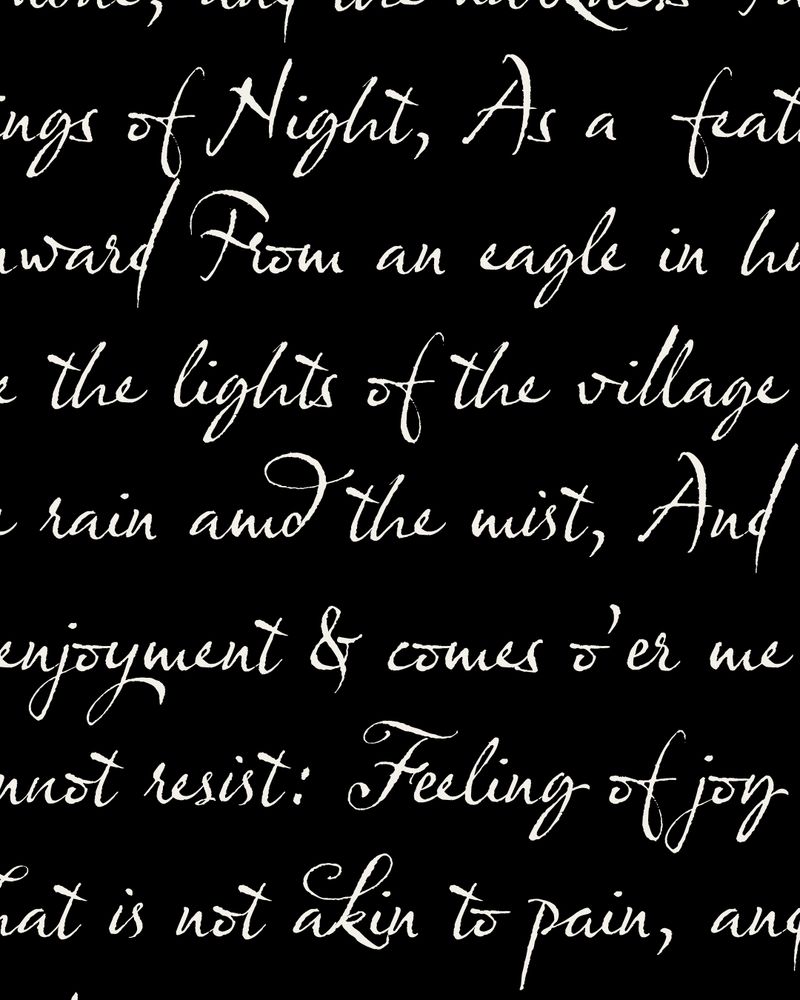 ings of Night, As a feat
nward From an eagle in
e the lights of the village
rain amd the mist, And
enjoyment & comes o'er me
nnot resist: Feeling of joy
hat is not akin to pain, and